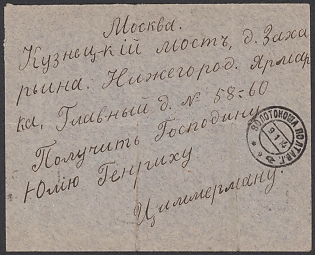 Москва.
Кузнецкій мостъ, д. Заха
рьина. Нижегород. Ярмар
ка, Главный д. № 58-60
Получить Господину
Юлію Генриху
Циммерману.
ЗОЛОТОНОША ПОЛТАВ. Г.